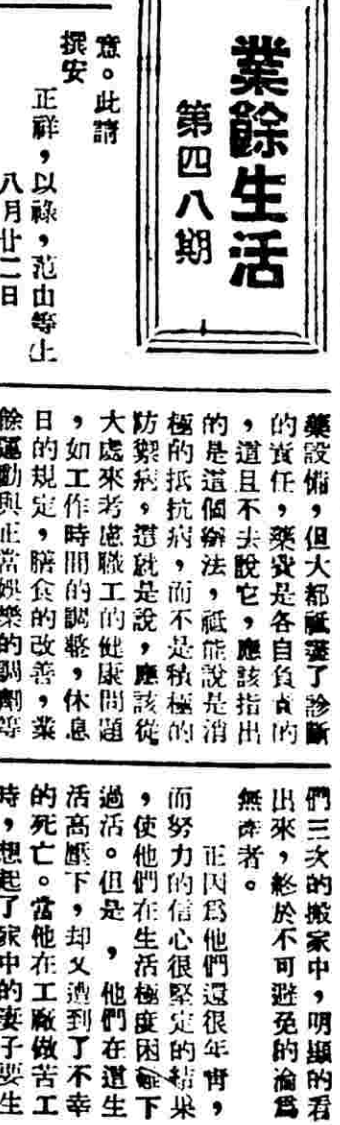 業餘生活
第四八期
意。此請
撰安
正祥,以祿,范由等上
八月廿二日
藥設備,但大都祗盡了診斷
的責任,藥費是各自負責的
,這且不去說它,應該指出
的是這個辦法,祗能說是消
極的抵抗病,而不是積極的
防禦病,這就是說,應該從
大處來考慮職工的健康問題
,如工作時間的調整,休息
日的規定,膳食的改善,業
餘運動與正當娛樂的調劑等
們三次的搬家中,明顯的看
出來,終於不可避免的淪爲
無產者。
正因爲他們還很年青,
而努力的信心很堅定的結果
,使他們在生活極度困難下
過活。但是,他們在這生
活高壓下,却又遭到了不幸
的死亡。當他在工廠做苦工
時,想起了家中的妻子要生